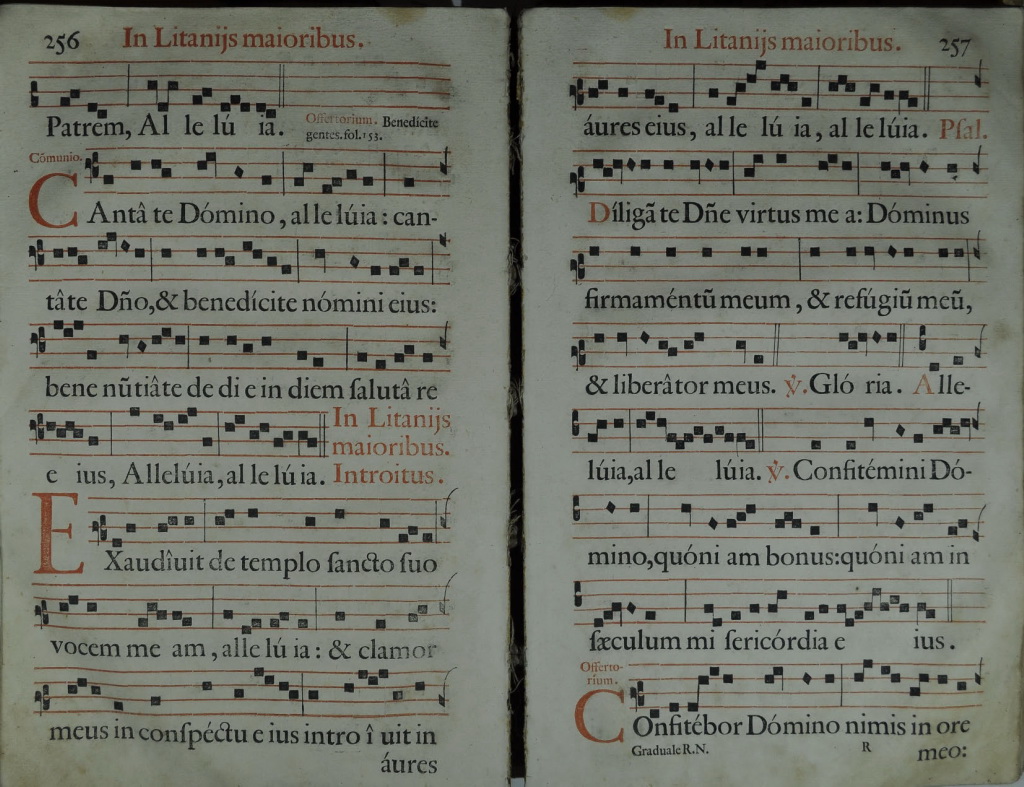 256 In Litanijs maioribus.
Patrem, Al le lú ia. Offertorium. Benedicite
gentes. fol. 153.
Cõmunio.
CAntâ te Dómino, al le lúia : can-
tâte Dño, & benedícite nómini eius:
bene nũtiâte de di e in diem ſalutâ re
e ius, Allelúia, al le lú ia. In Litanijs
maioribus.
Introitus.
EXaudîuit de templo ſancto ſuo
vocem me am, alle lú ia : & clamor
meus in conſpéctu e ius intro î uit in
áures
In Litanijs maioribus. 257
áures eius, al le lú ia, al le lúia. Pſal.
Díligã te Dñe virtus me a: Dóminus
firmaméntũ meum, & refúgiũ meũ,
& liberâtor meus. ℣. Gló ria. Alle-
lúia, al le lúia. ℣. Confitémini Dó-
mino, quóni am bonus: quóni am in
ſæculum mi ſericórdia e ius.
Offerto-
rium.
COnfitébor Dómino nimis in ore
Graduale R.N. R meo: